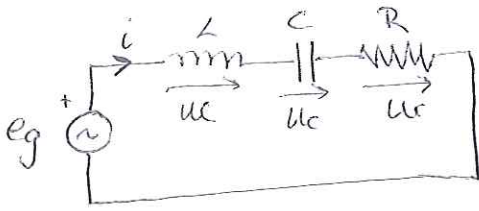 i L C R
+ uc uc ur
eg ~